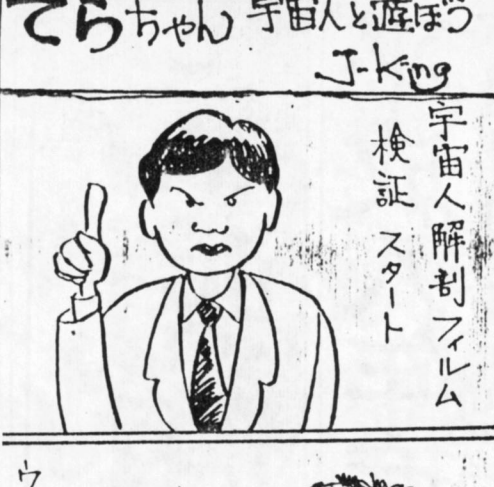 てらちゃん 宇宙人と遊ぼう
J-King
宇宙人解剖フィルム
検証 スタート
ウ